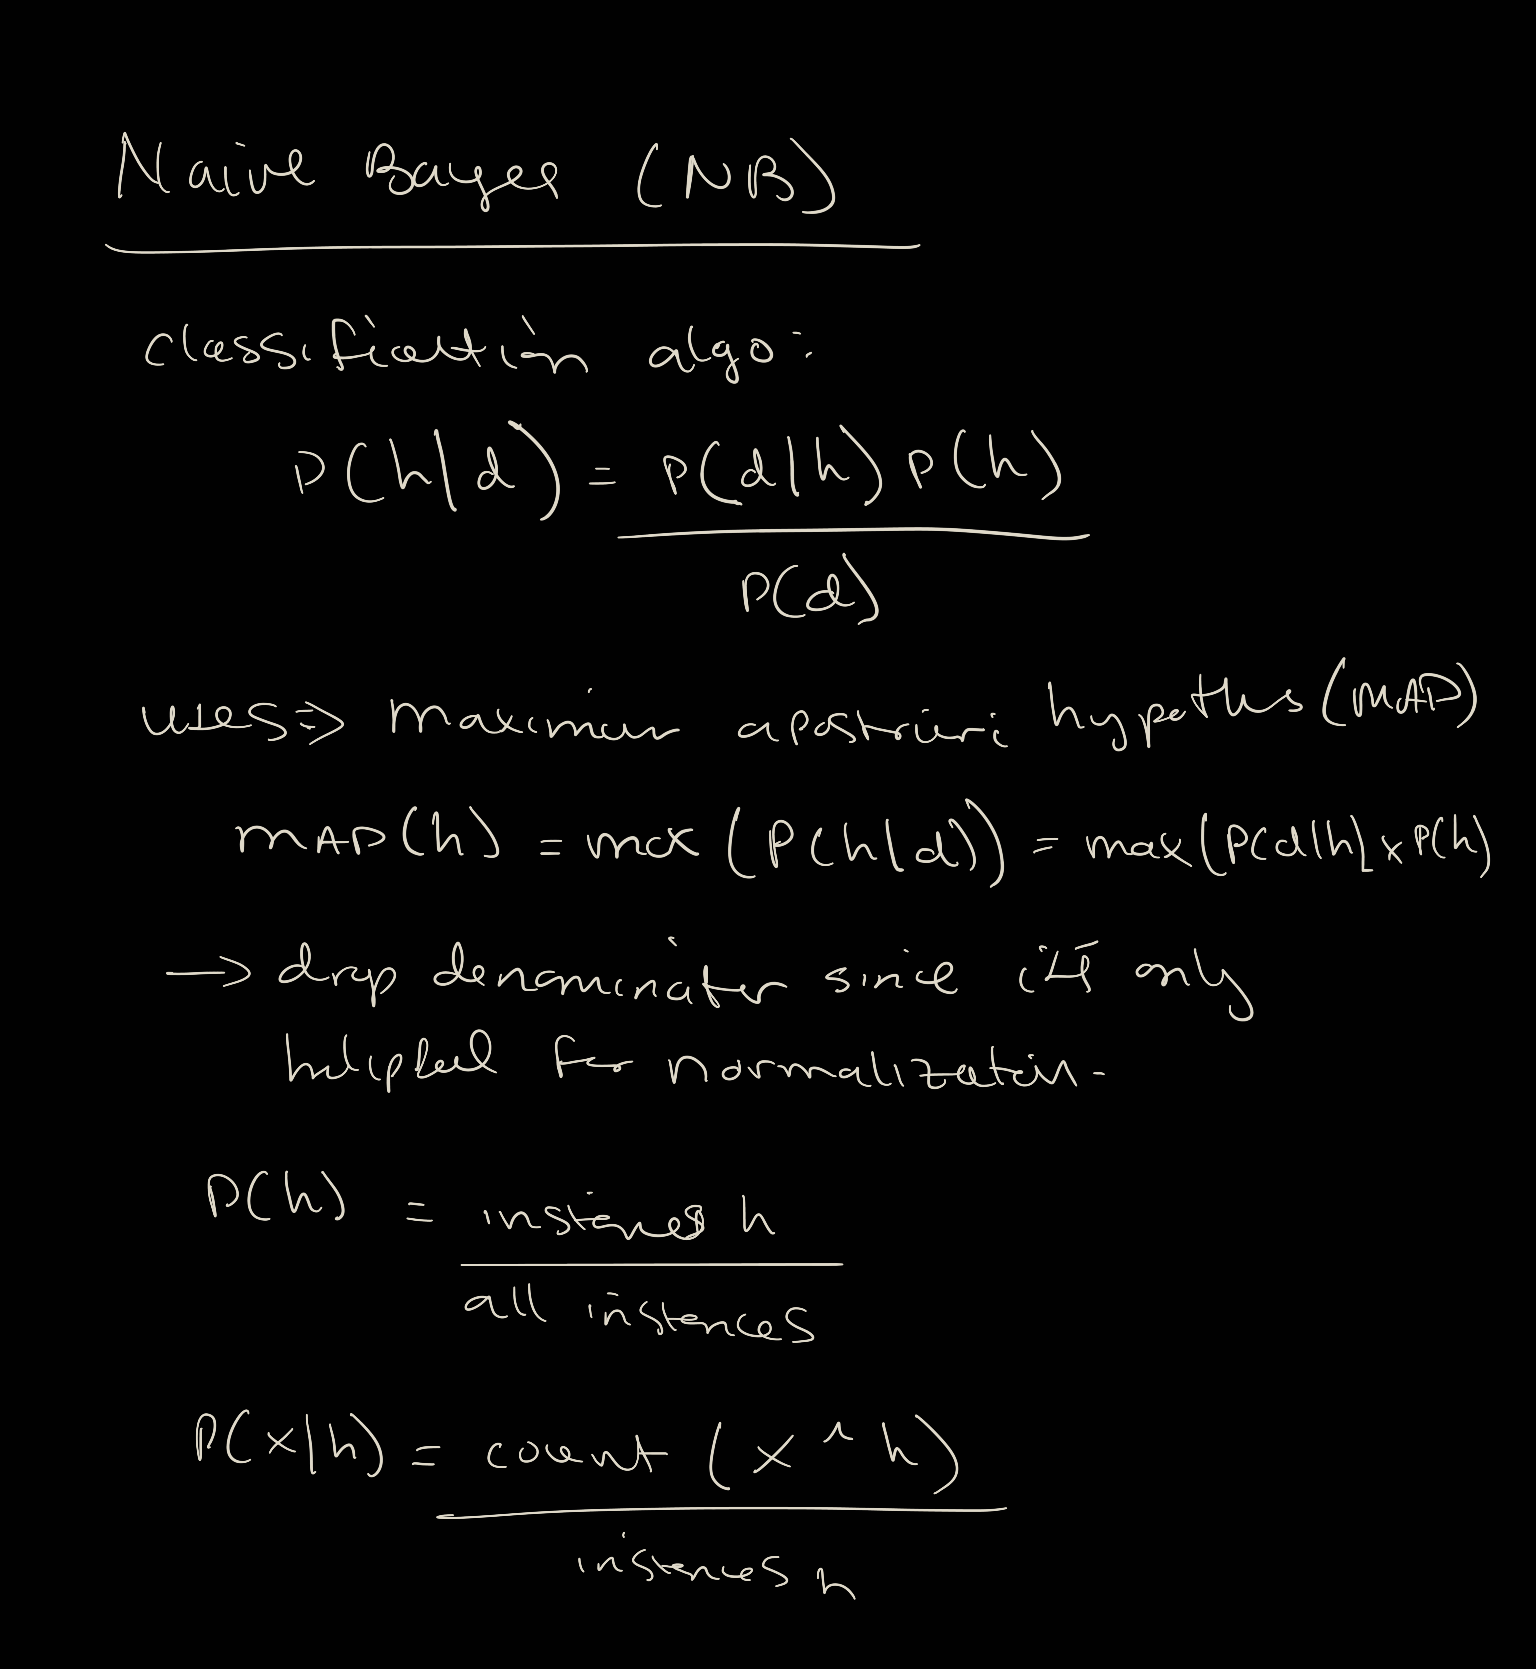 Naive Bayes (NB)
classification algo:
P(h|d) = P(d|h) P(h)
P(d)
uses => maximum aposteriori hypoths (MAP)
MAP(h) = max (P(h|d)) = max (P(d|h) x P(h)
→ drop denominator since it's only
helpful for normalization.
P(h) = instances h
all instances
P(x|h) = count (x ^ h)
instances h